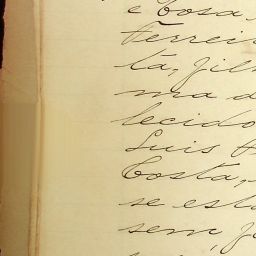 e Costa,
Ferrei
ta, fil
ma d
lecido
Luis
Costa,
se est
sem, f